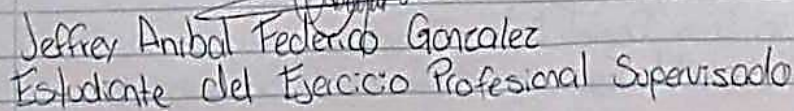 Jeffrey Anibal Federico Gonzalez
Estudiante del Ejercicio Profesional Supervisado